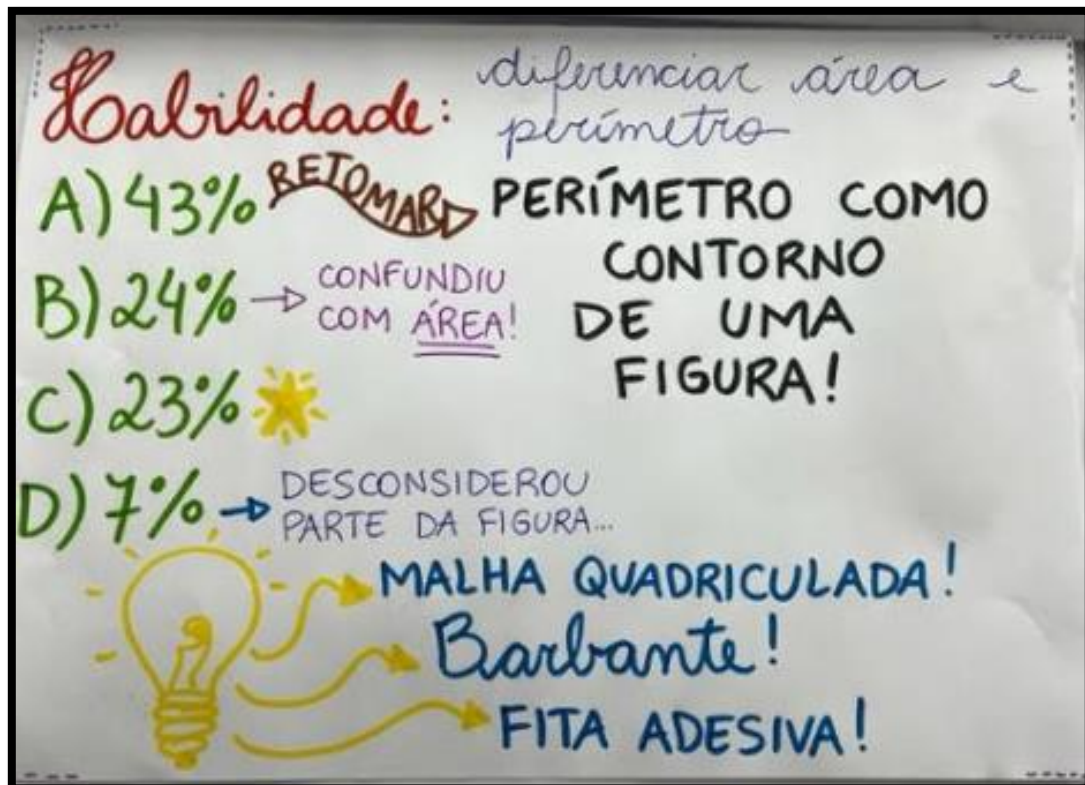 Habilidade: diferenciar área e
perímetro
A) 43% RETOMAR PERÍMETRO COMO
CONTORNO
DE UMA
FIGURA!
B) 24% → CONFUNDIU
COM ÁREA!
C) 23%
D) 7% → DESCONSIDEROU
PARTE DA FIGURA...
MALHA QUADRICULADA!
Barbante!
FITA ADESIVA!